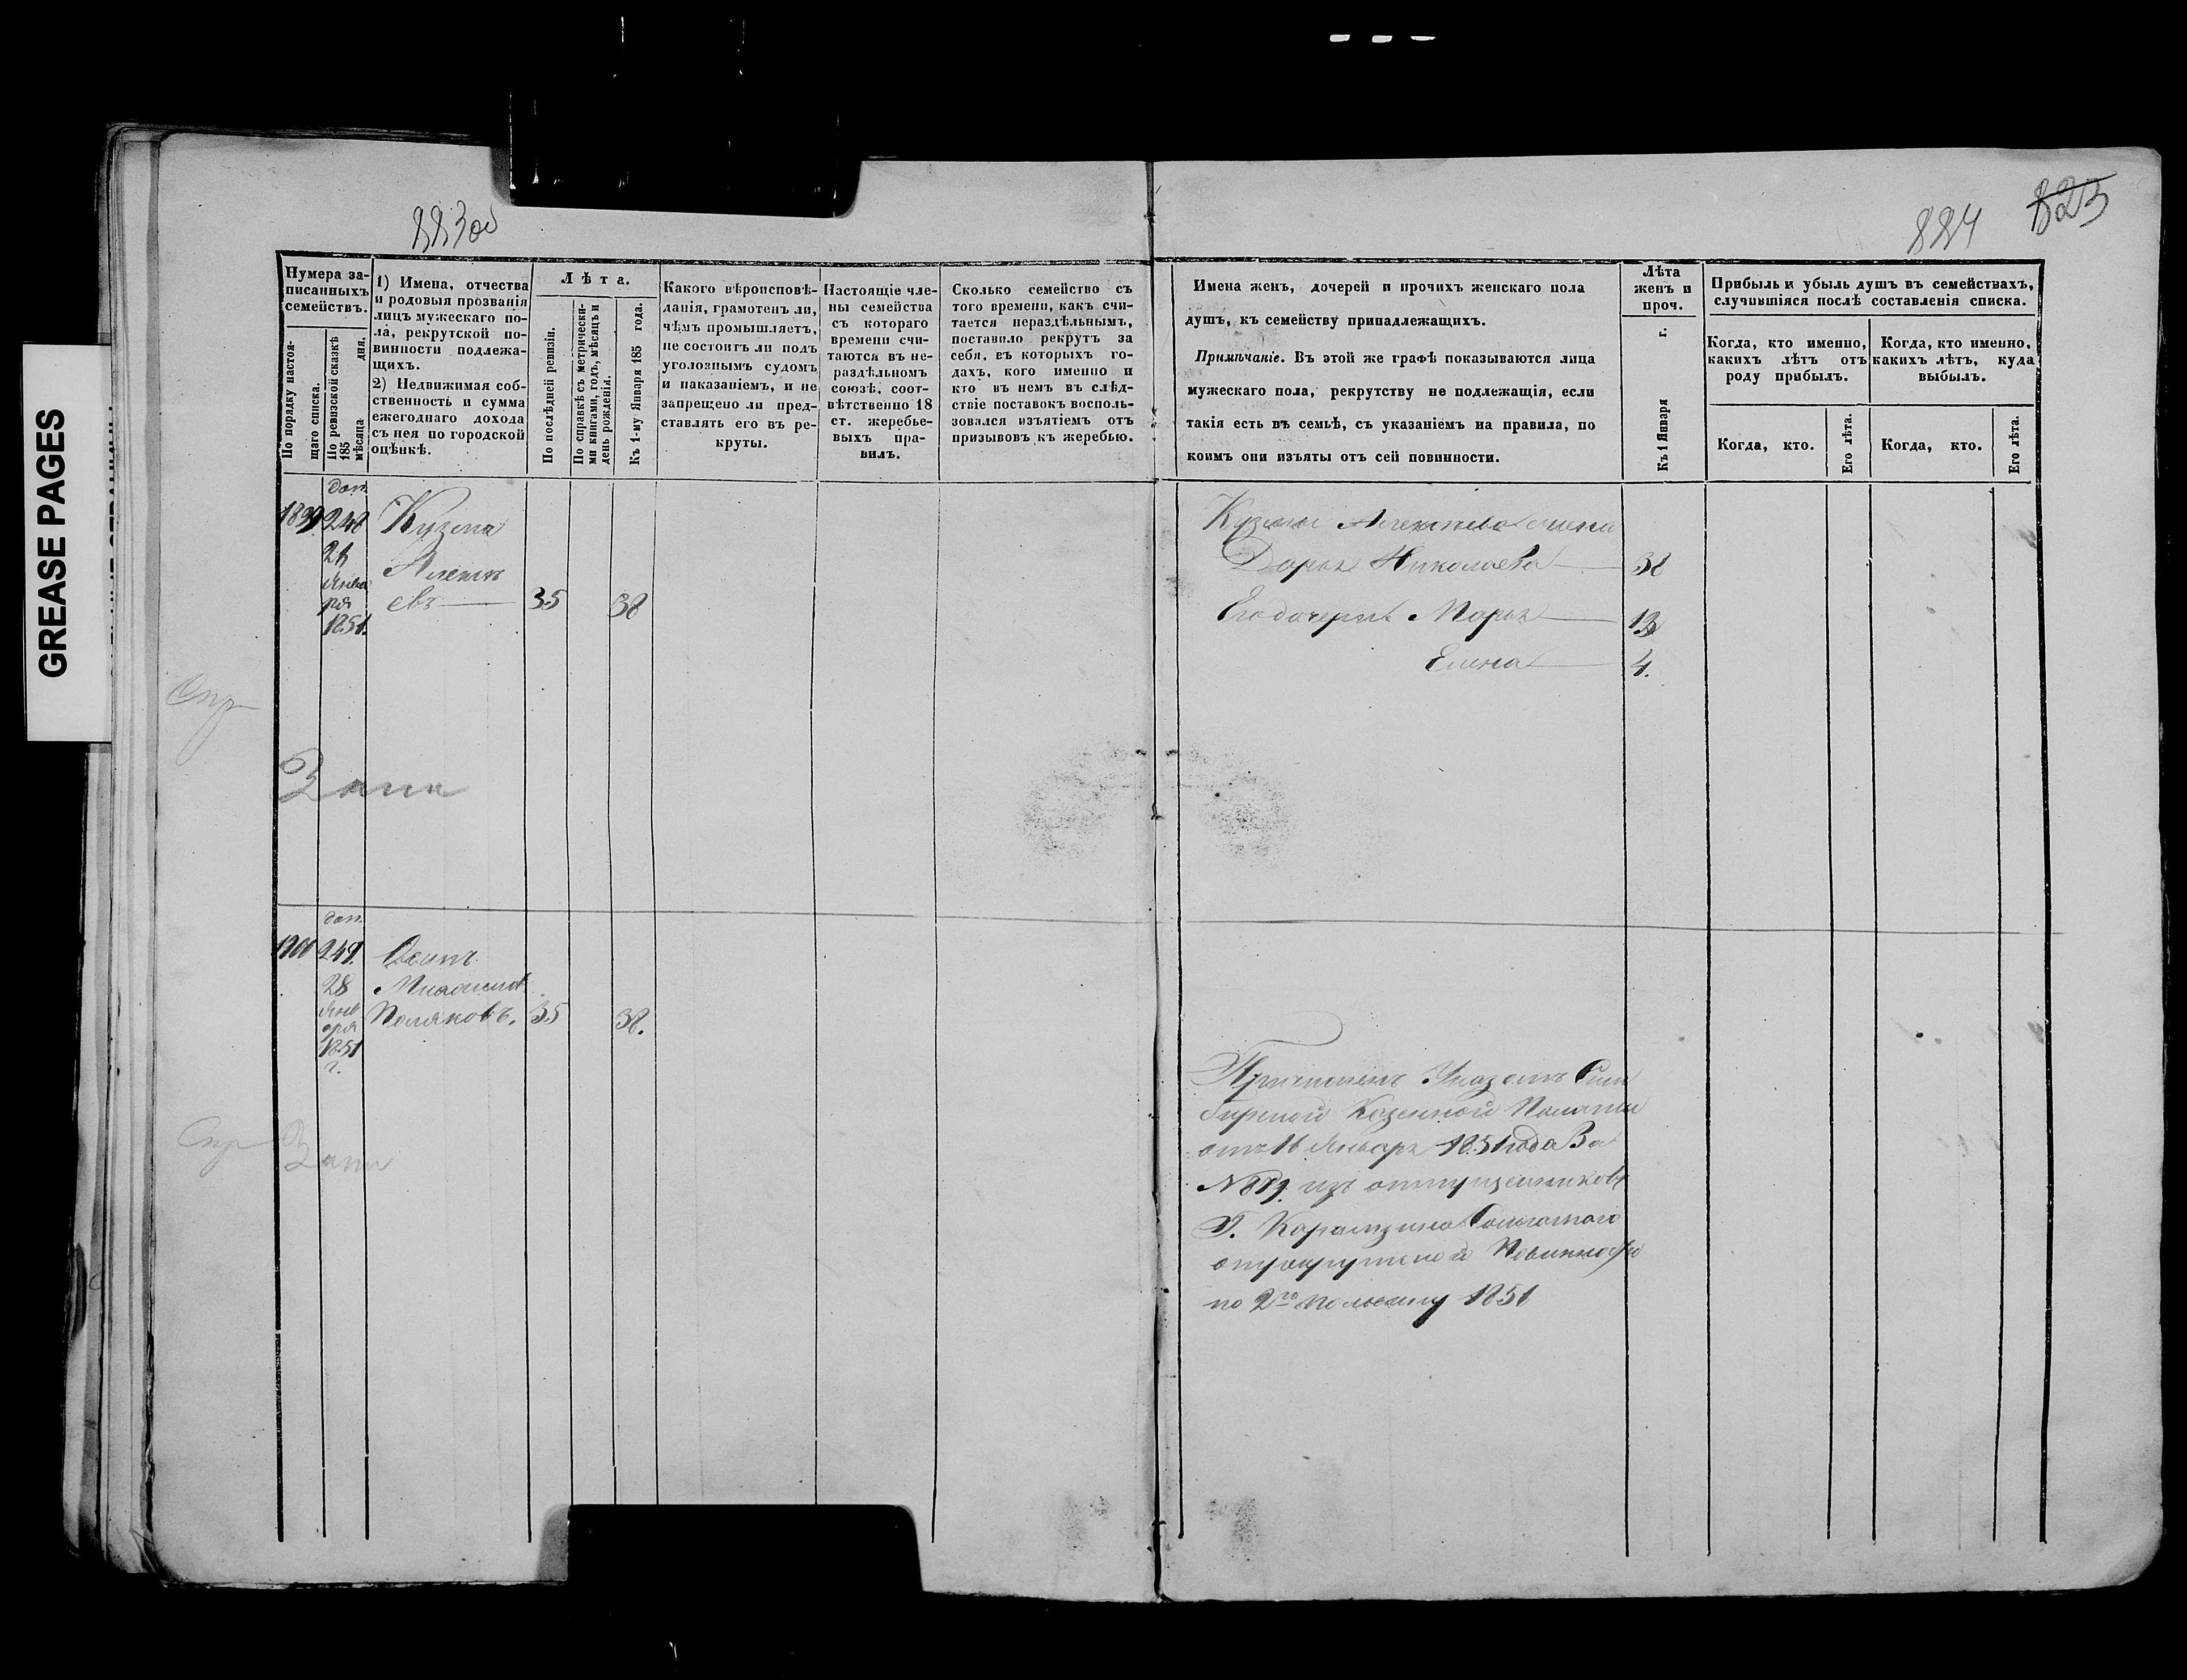 GREASE PAGES
883 об
884
823
Нумера за-
писанныхъ
семействъ.
По порядку настоя-
щаго списка.
По ревизской сказкѣ
185 мѣсяца дня.
1) Имена, отчества
и родовыя прозванія
лицъ мужескаго по-
ла, рекрутской по-
винности подлежа-
щихъ.
2) Недвижимая соб-
ственность и сумма
ежегоднаго дохода
съ нея по городской
оцѣнкѣ.
Лѣта.
По послѣдней ревизіи.
По справкѣ съ метрически-
ми книгами, годъ, мѣсяцъ и
день рожденія.
Къ 1-му Января 185 года.
Какого вѣроисповѣ-
данія, грамотенъ ли,
чѣмъ промышляетъ,
не состоитъ ли подъ
уголовнымъ судомъ
и наказаніемъ, и не
запрещено ли пред-
ставлять его въ ре-
круты.
Настоящіе чле-
ны семейства
съ котораго
времени счи-
таются въ не-
раздѣльномъ
союзѣ, соот-
вѣтственно 18
ст. жеребье-
выхъ пра-
вилъ.
Сколько семейство съ
того времени, какъ счи-
тается нераздѣльнымъ,
поставило рекрутъ за
себя, въ которыхъ го-
дахъ, кого именно и
кто въ немъ въ слѣд-
ствіе поставокъ восполь-
зовался изъятіемъ отъ
призывовъ къ жеребью.
Имена женъ, дочерей и прочихъ женскаго пола
душъ, къ семейству принадлежащихъ.
Примѣчаніе. Въ этой же графѣ показываются лица
мужескаго пола, рекрутству не подлежащія, если
такія есть въ семьѣ, съ указаніемъ на правила, по
коимъ они изъяты отъ сей повинности.
Лѣта
женъ и
проч.
Къ 1 Января г.
Прибыль и убыль душъ въ семействахъ,
случившіяся послѣ составленія списка.
Когда, кто именно,
какихъ лѣтъ отъ
роду прибылъ.
Когда, кто именно,
какихъ лѣтъ, куда
выбылъ.
Когда, кто.
Его лѣта.
Когда, кто.
Его лѣта.
доп.
248 Кузьма
Алексѣ
Янва
ря евъ 35 38
1851.
Кузьмы Алексѣева жена
Дарья Николаева 38
Его дочери Марья 13
Елена 4.
доп.
249. Осипъ
28
Янв Поляковъ. 35 38.
аря
1851
г.
Причисленъ Указомъ Сим
бирской Казенной Палаты
отъ 16 Января 1851 года За
N 879. изъ отпущенниковъ
Г. Карамзина
Повинности
по 2ю половину 1851